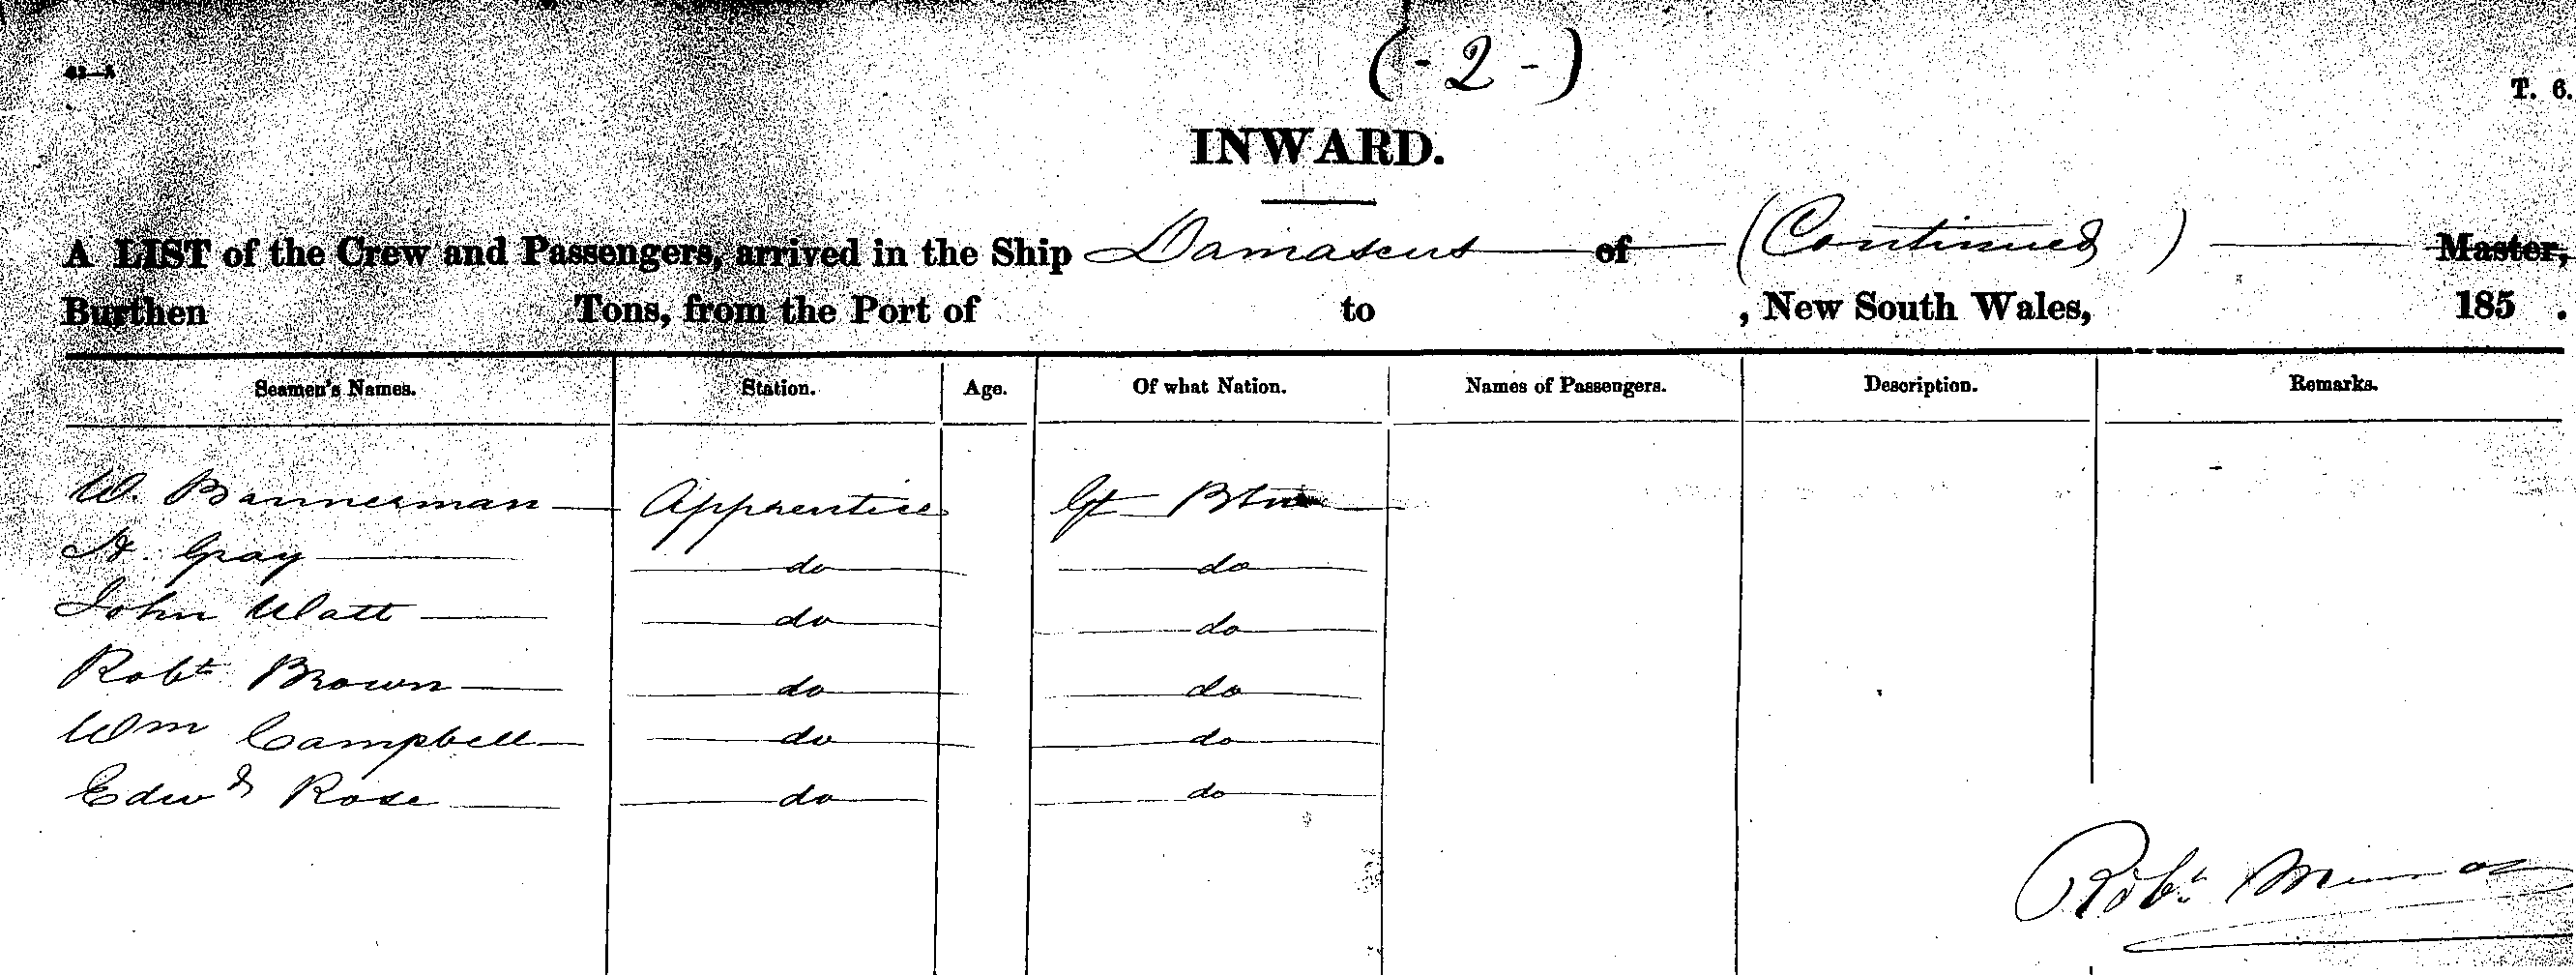 (-2-)
T. 6.
INWARD.
A LIST of the Crew and Passengers, arrived in the Ship Damascus of (Continued) Master,
Burthen Tons, from the Port of to , New South Wales, 185 .
Seamen's Names. Station. Age. Of what Nation. Names of Passengers. Description. Remarks.
W. Bannerman Apprentice Gt Btn
A. Gray do do
John Watt do do
Robt Brown do do
Wm Campbell do do
Edwd Rose do do
Robt Munro